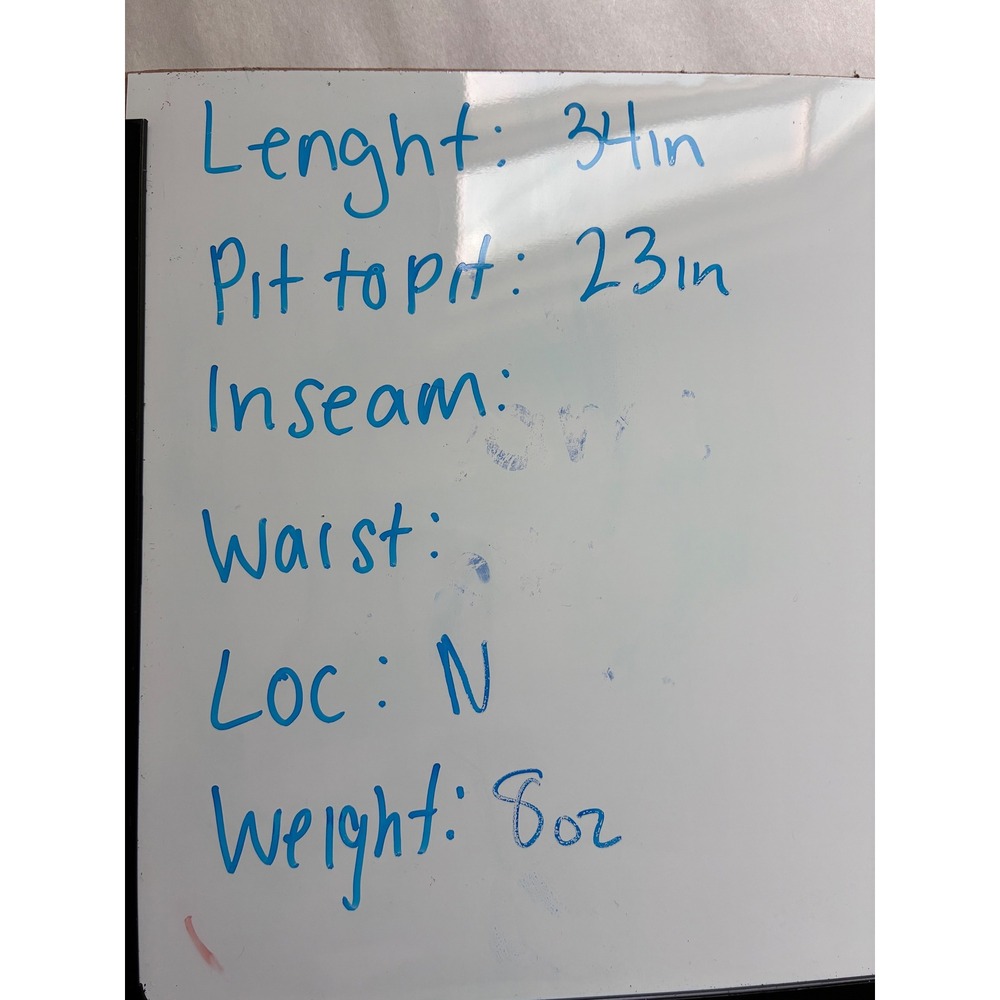 Lenght: 34in
Pit to pit: 23in
Inseam:
Waist:
Loc: N
Weight: 8oz